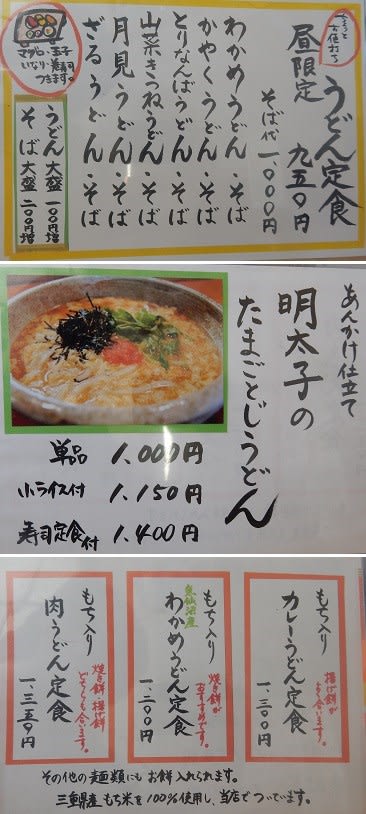 ちょっと
お値打ち
うどん定食
昼限定 九五〇円
そば代一、〇〇〇円
わかめうどん・そば
かやくうどん・そば
とりなんばうどん・そば
山菜きつねうどん・そば
月見うどん・そば
ざるうどん・そば
マグロ・玉子
いなり・巻寿司
つきます。
うどん大盛 一〇〇円増
そば 大盛 二〇〇円増
あんかけ仕立て
明太子の
たまごとじうどん
単品 1,000円
小ライス付 1,150円
寿司定食付 1,400円
もち入り
カレーうどん定食
揚げ餅が
よく合います。
一、三〇〇円
もち入り
気仙沼産
わかめうどん定食
焼き餅が
おすすめです。
一、二〇〇円
もち入り
肉うどん定食
焼き餅 揚げ餅
どちらも合います。
一、三五〇円
その他の麺類にもお餅入れられます。
三重県産もち米を100%使用し、当店でついています。